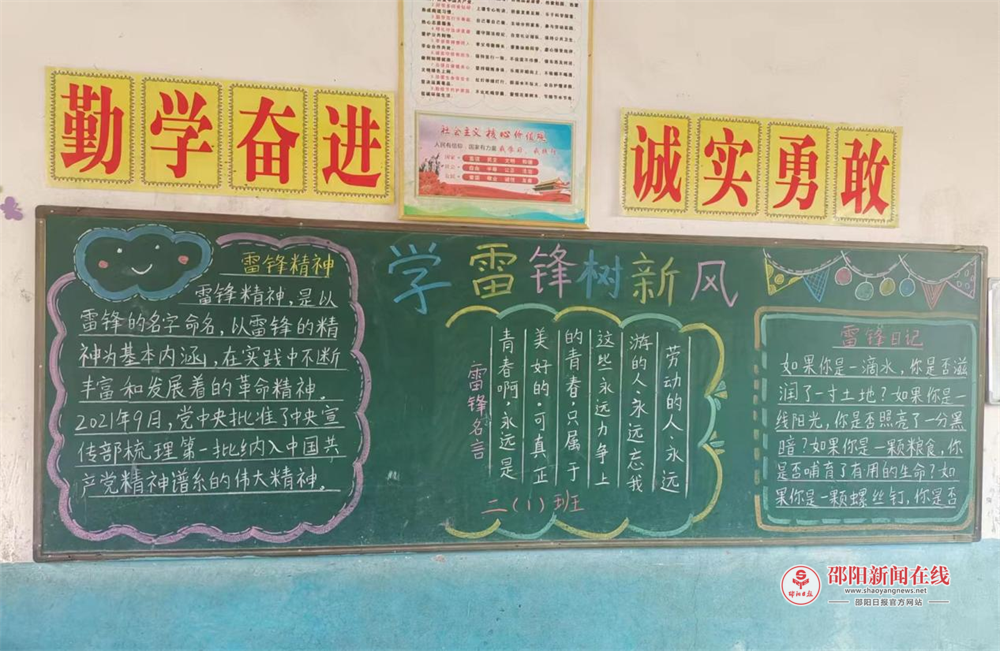 勤学奋进
诚实勇敢
社会主义核心价值观
学雷锋树新风
雷锋精神
雷锋精神,是以
雷锋的名字命名,以雷锋的精
神为基本内涵,在实践中不断
丰富和发展着的革命精神。
2021年9月,党中央批准了中央宣
传部梳理第一批纳入中国共
产党精神谱系的伟大精神。
雷锋名言
青春啊,永远是
美好的,可真正
的青春,只属于
这些永远力争上
游的人,永远忘我
劳动的人,永远
二(1)班
雷锋日记
如果你是一滴水,你是否滋
润了一寸土地?如果你是一
线阳光,你是否照亮了一分黑
暗?如果你是一颗粮食,你
是否哺育了有用的生命?如
果你是一颗螺丝钉,你是否
邵阳日报
邵阳新闻在线
www.shaoyangnews.net
邵阳日报官方网站